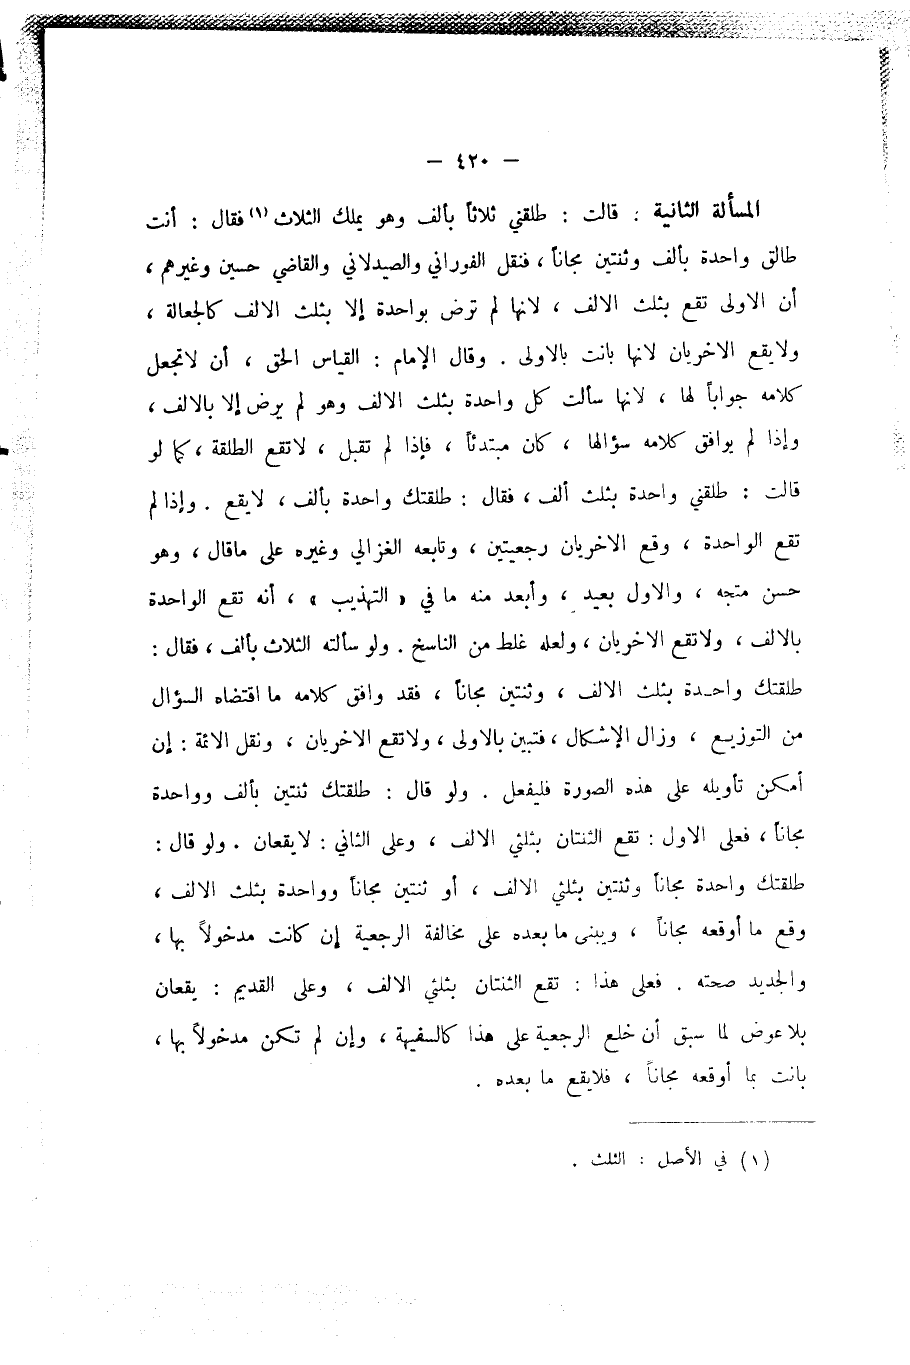 — ٤٢٠ —
المسألة الثانية : قالت : طلقني ثلاثاً بألف وهو يملك الثلاث (١) فقال : أنت
طالق واحدة بألف وثنتين مجاناً ، فنقل الفوراني والصيدلاني والقاضي حسين وغيرهم ،
أن الاولى تقع بثلث الالف ، لانها لم ترض بواحدة إلا بثلث الالف كالجعالة ،
ولايقع الاخريان لانها بانت بالاولى . وقال الإمام : القياس الحق ، أن لاتجعل
كلامه جواباً لها ، لانها سألت كل واحدة بثلث الالف وهو لم يرض إلا بالالف ،
وإذا لم يوافق كلامه سؤالها ، كان مبتدئاً ، فإذا لم تقبل ، لاتقع الطلقة ، كما لو
قالت : طلقني واحدة بثلث ألف ، فقال : طلقتك واحدة بألف ، لايقع . وإذا لم
تقع الواحدة ، وقع الاخريان رجعيتين ، وتابعه الغزالي وغيره على ماقال ، وهو
حسن متجه ، والاول بعيد ، وأبعد منه ما في « التهذيب » ، أنه تقع الواحدة
بالالف ، ولاتقع الاخريان ، ولعله غلط من الناسخ . ولو سألته الثلاث بألف ، فقال :
طلقتك واحدة بثلث الالف ، وثنتين مجاناً ، فقد وافق كلامه ما اقتضاه السؤال
من التوزيع ، وزال الإشكال ، فتبين بالاولى ، ولاتقع الاخريان ، ونقل الائمة : إن
أمكن تأويله على هذه الصورة فليفعل . ولو قال : طلقتك ثنتين بألف وواحدة
مجاناً ، فعلى الاول : تقع الثنتان بثلثي الالف ، وعلى الثاني : لايقعان . ولو قال :
طلقتك واحدة مجاناً وثنتين بثلثي الالف ، أو ثنتين مجاناً وواحدة بثلث الالف ،
وقع ما أوقعه مجاناً ، ويبنى ما بعده على مخالفة الرجعية إن كانت مدخولاً بها ،
والجديد صحته . فعلى هذا : تقع الثنتان بثلثي الالف ، وعلى القديم : يقعان
بلا عوض لما سبق أن خلع الرجعية على هذا كالسفيهة ، وإن لم تكن مدخولاً بها ،
بانت بما أوقعه مجاناً ، فلايقع ما بعده .
(١) في الأصل : الثلث .